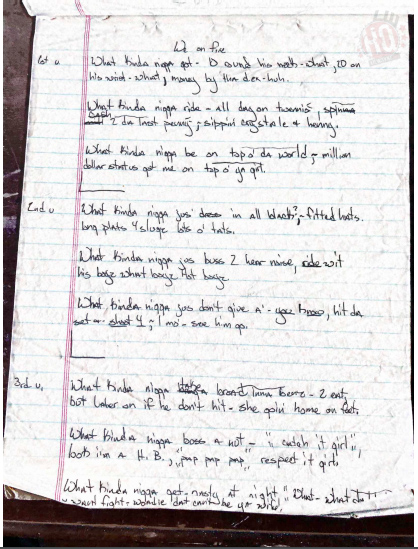 We on fire
1st v. What kinda nigga got - D round his neck - what, 20 on
his wrist - what, money by tha dex - huh.
What kinda nigga ride - all day on twennis, spinnas
cash 2 da last penny; sippin crystale & henny.
What kinda nigga be on top o' da world; million
dollar status got me on top o' ya girl.
2nd v. What kinda nigga jus' dress in all black?; fitted hats.
long plats 4 slugs lots o' tats.
What kinda nigga jus buss 2 hear noise, ride wit
his boyz what boyz Hot boyz
What kinda nigga jus don't give a' - hit da
set - shoot 4; 1 mo' - see him go.
3rd v. What kinda nigga take a broad inna benz - 2 eat,
but later on if he don't hit - she goin' home on feet.
What kinda nigga boss a nut - " catch it girl",
both i'm a H.B., "pap pap pap" respect it girl,
What kinda nigga get - nasty at night, " What - what da
wann fight - wodie dat can't be ya wife.
HO!